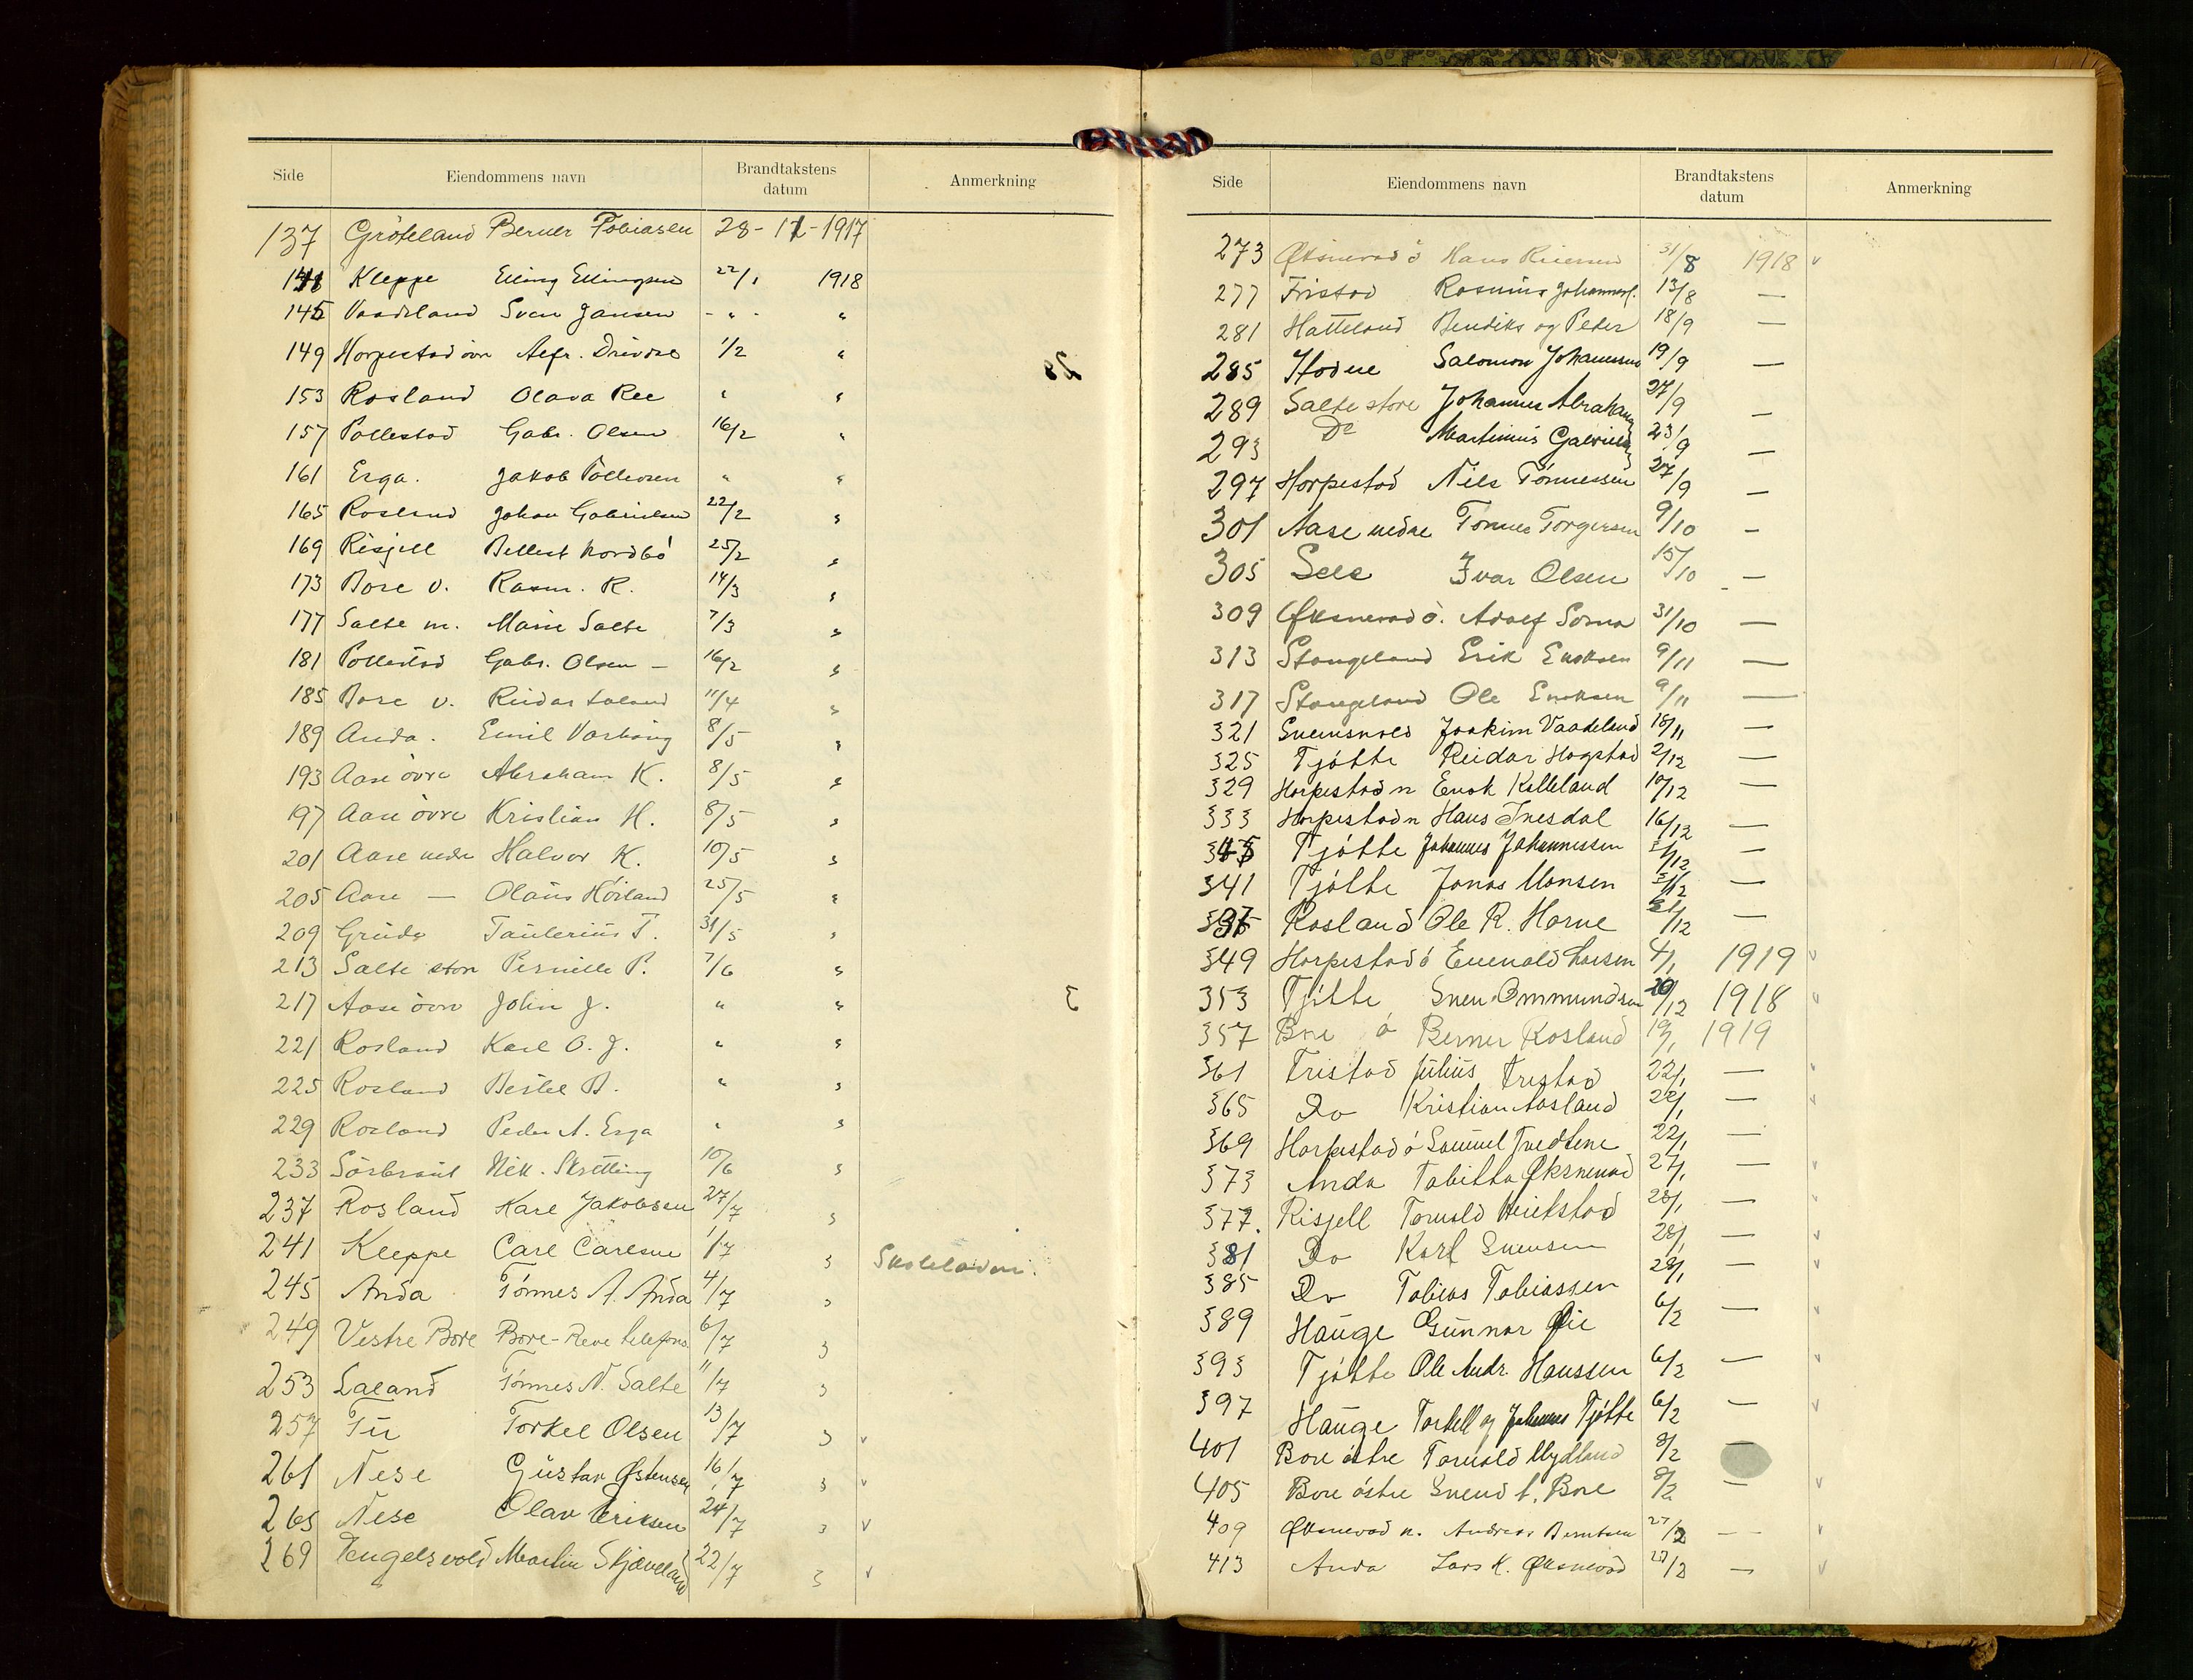 Side Eiendommens navn Brandtakstens datum Anmerkning
137 Gröteland Berner Tobiasen 28-12-1917
141 Kleppe Elling Ellingsen 22/1 1918
145 Vaadeland Sven Jansen - " - "
149 Horpestad övr 1/2 "
153 Rosland Olava Ree " "
157 Pollestad Gabr. Olsen 16/2 "
161 Erga. Jakob Tollevsen " "
165 Rosland Johan Gabrielsen 22/2 "
169 Risjell Bellest Nordbö 25/2 "
173 Bore v. Rasm. R. 14/3 "
177 Salte m. Marie Salte 7/3 "
181 Pollestad Gabr. Olsen - 16/2 "
185 Bore v. Reidar Laland 11/4 "
189 Anda. Emil Varhaug 8/5 "
193 Aase övre Abraham K. 8/5 "
197 Aase övre Kristian H. 8/5 "
201 Aase nedre Halvor K. 10/5 "
205 Aase — Olaus Höiland 25/5 "
209 Gruda Taulerius T. 31/5 "
213 Salte store Pernille P. 7/6 "
217 Aase övre John J. " "
221 Rosland Karl O. J. " "
225 Rosland Bertel B. " "
229 Rosland Peder A. Erga " "
233 Sörbraut Nik. Skretting 10/6 "
237 Rosland Karl Jakobsen 27/7 "
241 Kleppe Carl Carlsen 1/7 "
245 Anda Tönnes A. Anda 4/7 "
249 Vestre Bore Bore-Reve telefons. 6/7 "
253 Laland Tönnes N. Salte 11/7 "
257 Tu Torkel Olsen 13/7 " v
261 Nese Gustav Østensen 16/7 " v
265 Nese Olav Eriksen 24/7 " v
269 Engelsvold Martin Skjæveland 22/7 " v
Side Eiendommens navn Brandtakstens datum Anmerkning
273 Øksnevad ö Hans 31/8 1918 v
277 Fristad Rasmus Johannes. 13/8 —
281 Hatteland Bendiks og Peder 18/9 —
285 Hodne Salomon Johannessen 19/9 —
289 Salte store Johannes Abraham 27/9 —
293 Do Martinius Gabriels 23/9 —
297 Horpestad Nils Tönnessen 27/9 —
301 Aase nedre Tönnes Torgersen 9/10 —
305 Sele Ivar Olsen 15/10 —
309 Øksnevad ö. Adolf Soma 31/10 —
313 Stangeland Erik Enoksen 9/11 —
317 Stangeland Ole Enoksen 9/11 —
321 Joakim Vaadeland 18/11 —
325 Tjötte Reidar Hogstad 2/12 —
329 Horpestad n Enok Kalleland 10/12 —
333 Horpestad n Hans Tnesdal 16/12 —
345 Tjötte Johannes Johannessen 21/12 —
341 Tjötte Jonas Monsen 21/12 —
337 Rosland Ole R. Horne 21/12 —
349 Horpestad ö Euenald Larsen 4/1 1919 v
353 Tjötte Sven Ommundsen 20/12 1918 v
357 Bore ö Berner Rosland 1919
361 Fristad Julius Fristad 22/1 —
365 Do Kristian Aasland 22/1 — v
369 Horpestad ö Samuel Tuedtene 22/1 —
373 Anda Tabitha Øksnevad 27/1 — v
377. Risjell Torvald Heikstad 28/1 — v
381 Do Karl Svensen 28/1 — v
385 Do Tobias Tobiassen 28/1 — v
389 Hauge Gunnar Øie 6/2 — v
393 Tjötte Ole Andr. Hanssen 6/2 — v
397 Hauge Torkell og Johannes Tjötte 6/2 — v
401 Bore östre Torvald Mydland 8/2
405 Bore östre Svend t. Bore 8/2 — v
409 Øksnevad n. Andreas Berntsen 27/2 — v
413 Anda Lars K. Øksnevad 27/2 — v